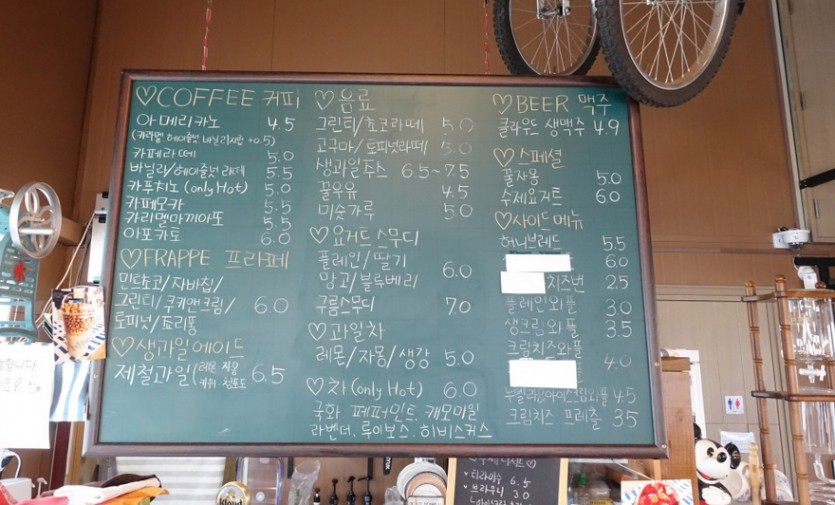 ♡COFFEE 커피
아메리카노 4.5
(카라멜 헤이즐넛 바닐라시럽 +0.5)
카페라떼 5.0
바닐라/헤이즐넛 라떼 5.5
카푸치노 (only Hot) 5.0
카페모카 5.5
카라멜마끼아또 5.5
아포카토 6.0
♡FRAPPE 프라페
민트초코/자바칩/
그린티/쿠키앤크림/ 6.0
토피넛/쵸리퐁
♡생과일에이드
제철과일 (레몬 자몽 6.5
키위·청포도
♡음료
그린티/쵸코라떼 5.0
고구마/토피넛라떼 5.0
생과일주스 6.5~7.5
꿀우유 4.5
미숫가루 5.0
♡요거트스무디
플레인/딸기
망고/블루베리 6.0
구름스무디 7.0
♡과일차
레몬/자몽/생강 5.0
♡차 (only Hot) 6.0
국화 페퍼민트. 캐모마일
라벤더. 루이보스. 히비스커스
♡BEER 맥주
클라우드 생맥주 4.9
♡스페셜
꿀자몽 5.0
수제요거트 6.0
♡사이드메뉴
허니브레드 5.5
6.0
치즈번 2.5
플레인와플 3.0
생크림와플 3.5
크림치즈와플
4.0
4.5
크림치즈 프레즐 3.5
티라미수 6.5
브라우니 3.0